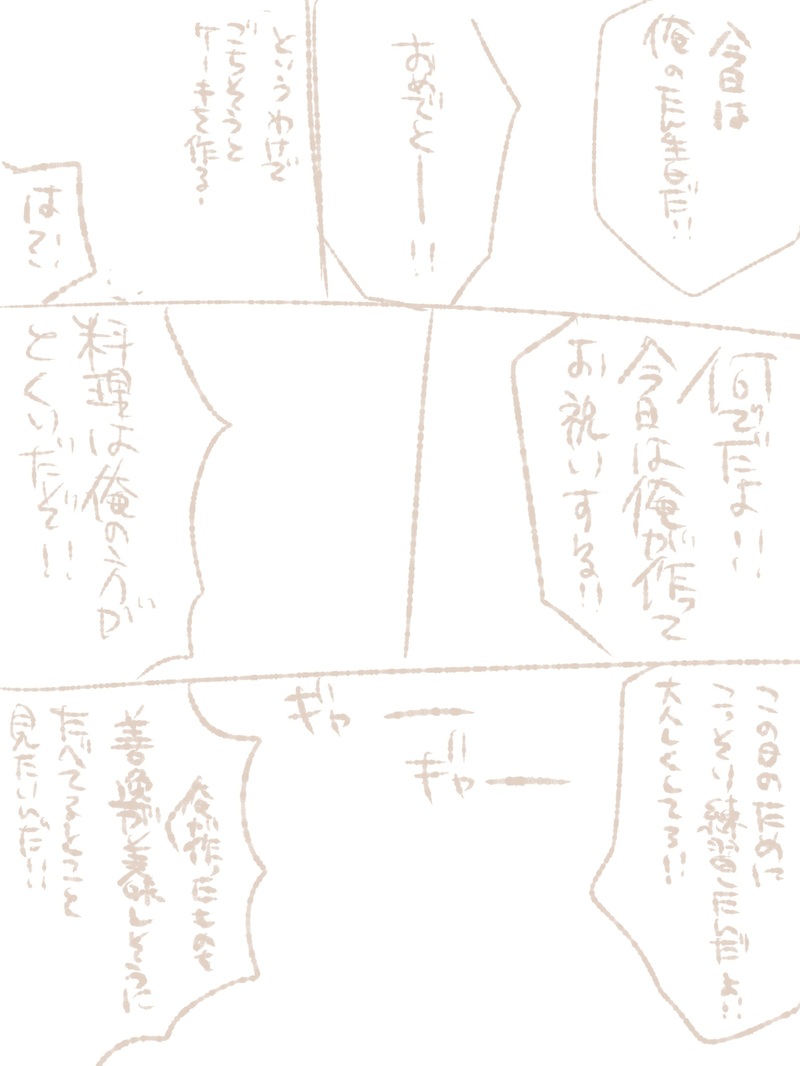 今日は
俺のたん生日だ!!
おめでとー!!
というわけで
ごちそうと
ケーキを作る.
はぁ!
何でだよ!!
今日は俺が作って
お祝いする!!
料理は俺の方が
とくいだぞ!!
この日のために
こっそり練習したんだよ!!
大人しくしてろ!!
ギャー
ギャー
俺が作ったものを
美味しそうに
たべてるとこを
見たいんだ!!